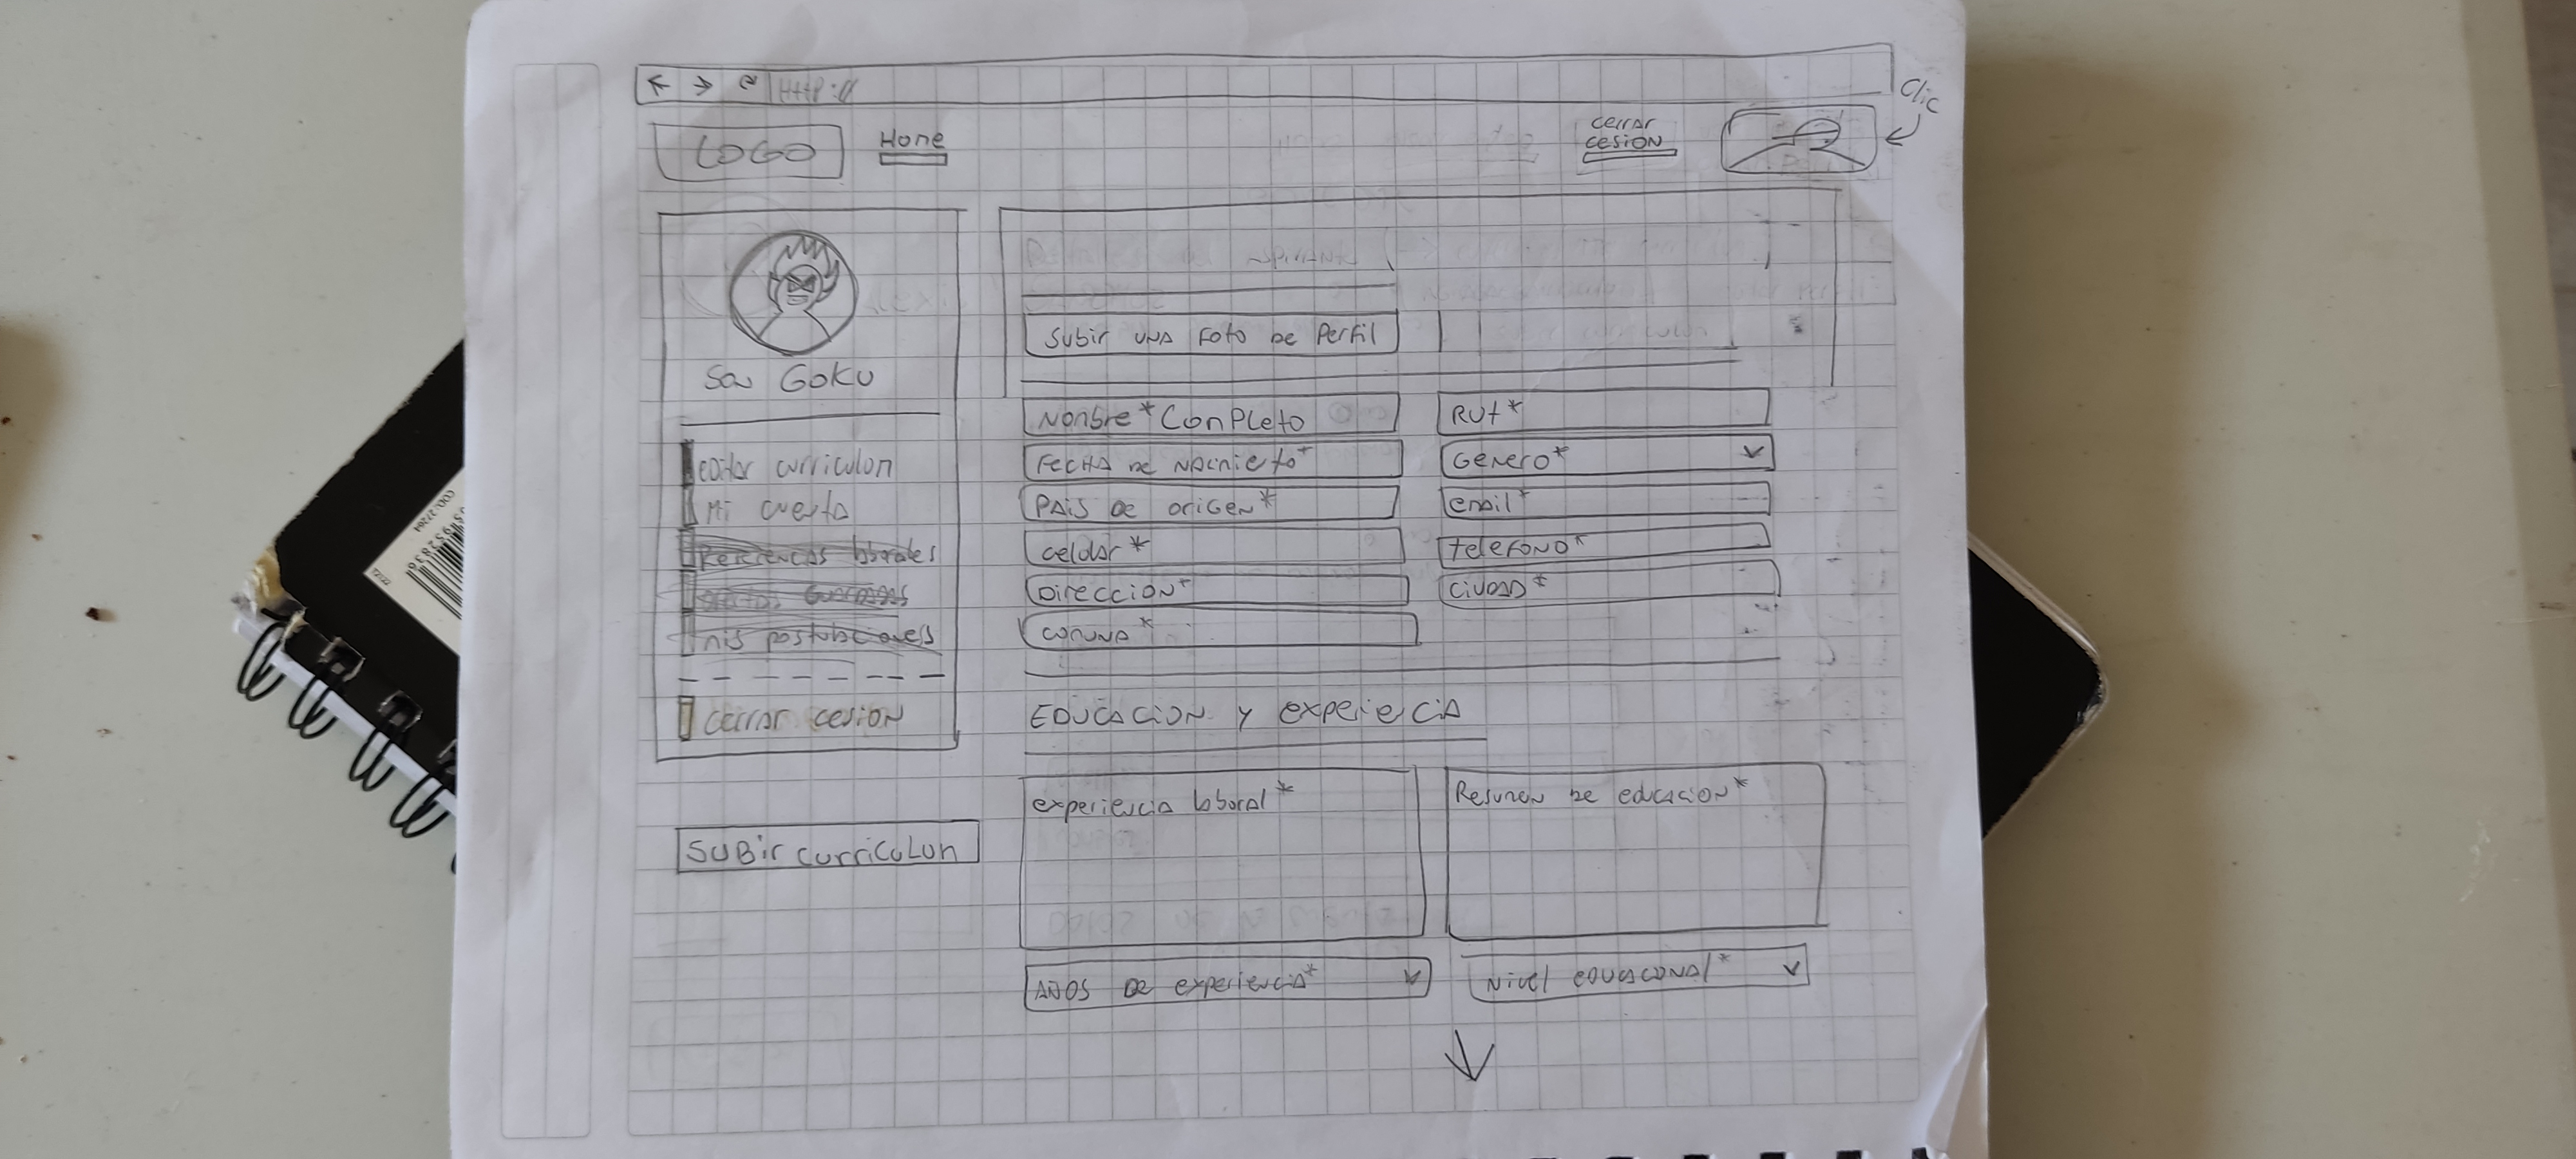 HTTP://
LOGO
Home
cerrar
cesion
Clic
Son Goku
editar curriculon
Mi cuenta
Referencias laborales
mis postulaciones
cerrar cesion
SUBir curriculun
Subir una foto de Perfil
Nombre* Conpleto
Rut*
Fecha de nacinieto*
Genero*
Pais de origen*
email*
celular*
telefono*
Direccion*
ciudad*
comuna*
EDUCACION y experiecia
experiencia laboral*
Resumen de educacion*
Años de experiencia*
Nivel educaconal*